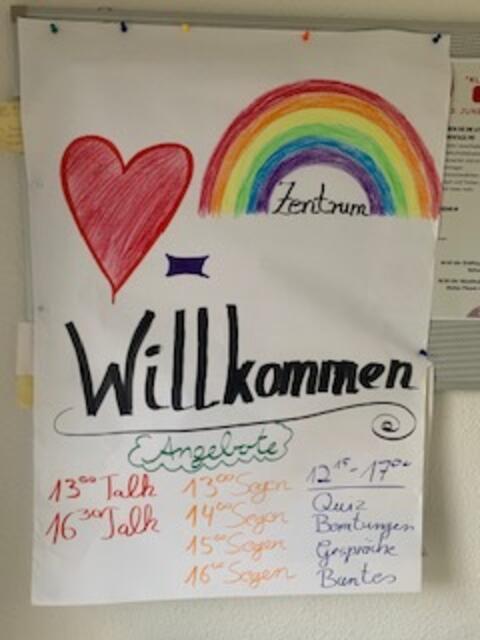 Zentrum
Willkommen
Angebote
13⁰⁰ Talk
16³⁰ Talk
13⁰⁰ Segen
14⁰⁰ Segen
15⁰⁰ Segen
16⁰⁰ Segen
12¹⁵ - 17⁰⁰
Quiz
Beratungen
Gespräche
Buntes